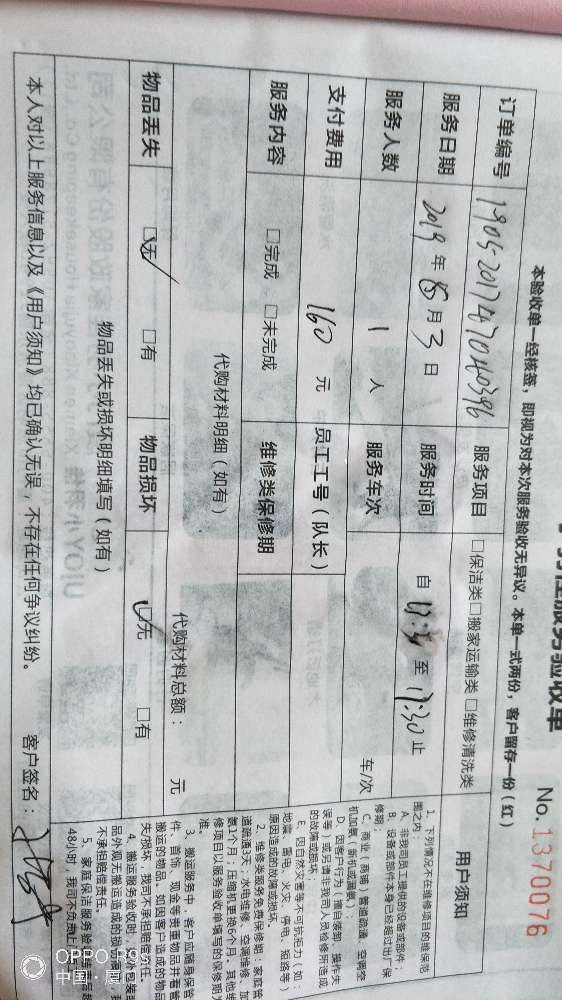 性服务验收单
No. 1370076
本验收单一经核签，即视为对本次服务验收无异议。本单一式两份，客户留存一份（红）
订单编号 服务项目 □保洁类□搬家运输类□维修清洗类
服务日期 2019年 月3日 服务时间 自 至17:30止
服务人数 1人 服务车次 车/次
支付费用 160元 员工工号（队长）
服务内容 □完成 □未完成 维修类保修期
代购材料明细（如有）
代购材料总额： 元
物品丢失 □无 □有 物品损坏 □无 □有
物品丢失或损坏明细填写（如有）
本人对以上服务信息以及《用户须知》均已确认无误，不存在任何争议纠纷。 客户签名：
用户须知
1、下列情况不在维修项目的维保范
围之内
A、非我司员工提供的设备或部件；
B、设备或部件本身已经超过出厂保
修期；
C、商业（商铺）管道疏通、空调空
机加氟（新机或漏氟）
D、因客户行为（擅自装卸、操作失
误等）或另请非我司人员检修所造成
的故障或损坏；
E、因自然灾害等不可抗拒力（如：
地震、雷电、火灾、停电、短路等）
原因造成的故障或损坏。
2、维修类服务免费保修期：家庭管
道疏通3天；水电维修、空调维修、加
氨1个月；压缩机更换6个月，其他维
修项目以服务验收单填写的保修期为
准。
3、搬运服务中，客户应随身保管
件、首饰、现金等贵重物品并看管
搬运的物品。如因客户造成的物品
失/损坏，我司不承担赔偿责任。
4、搬运服务验收时，
品外观无搬运造成的损
不承担赔偿责任。
5、家庭保洁服务验
48小时，我司不负责
OPPO R9s
中国·厦